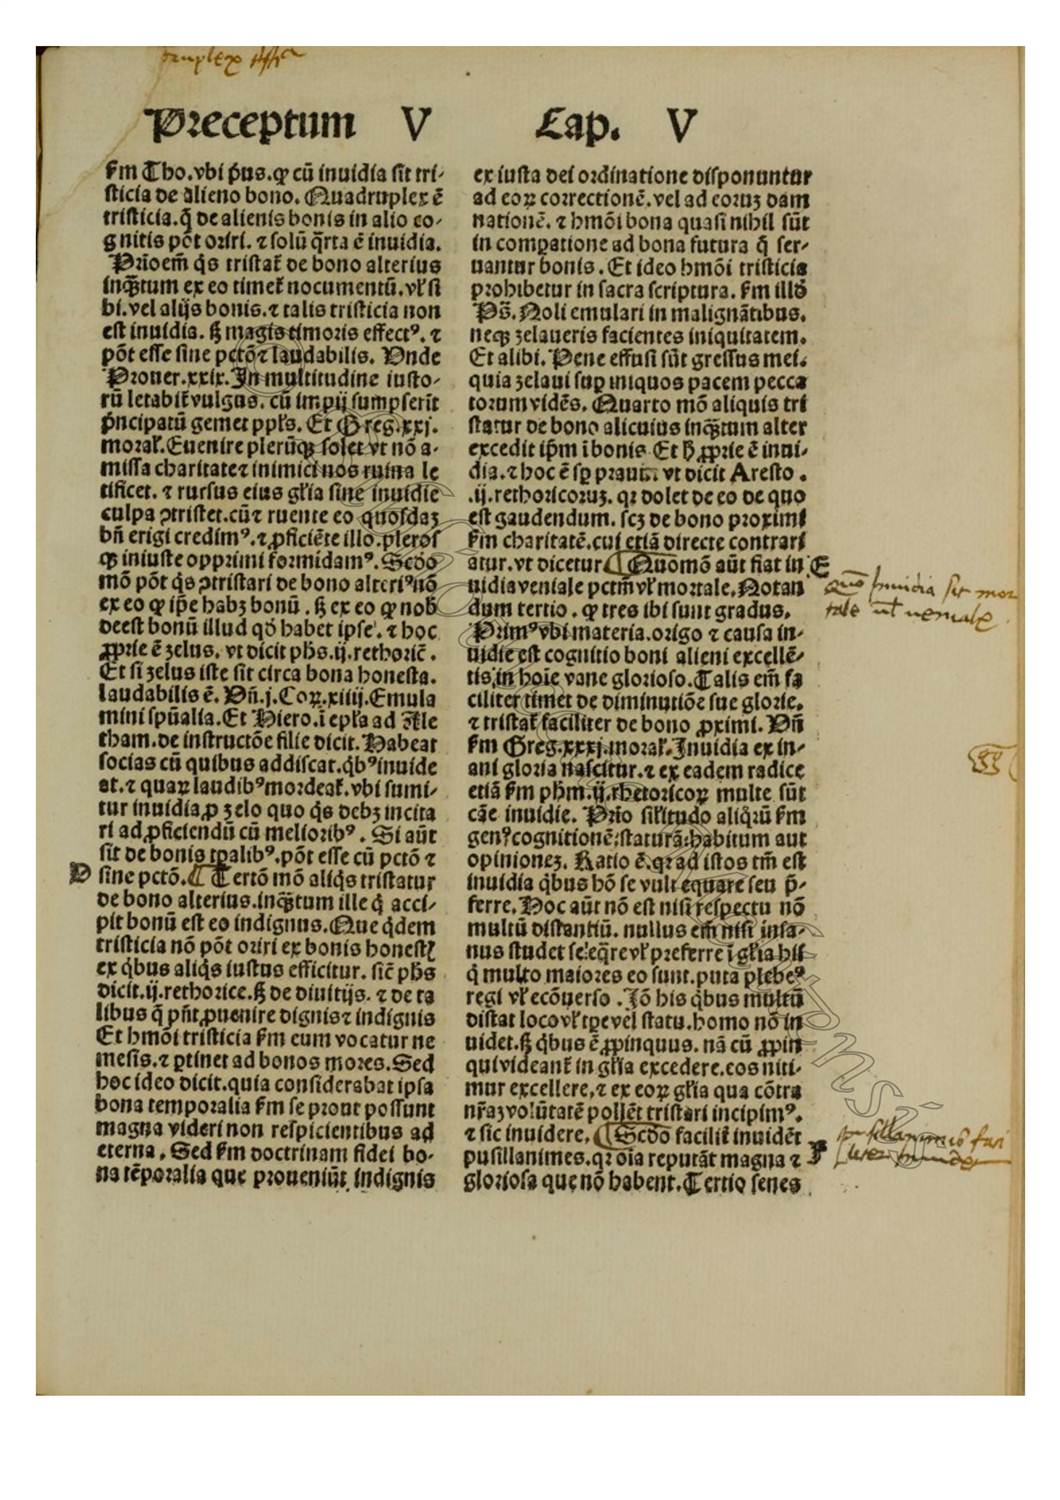 Preceptum V Cap. V
ẜm Tho. vbi p̃us. ꝙ cũ inuidia sit tri⸗
sticia de alieno bono. Quadruplex ẽ
tristicia. q̃ de alienis bonis in alio co⸗
gnitis põt oriri. ⁊ solũ q̃rta ẽ inuidia.
Prĩo em̃ q̃s tristat̃ de bono alterius
inq̃tum ex eo timet̃ nocumentũ. vl̃ si
bi. vel alijs bonis. ⁊ talis tristicia non
est inuidia. sꝫ magis timoris effectꝰ. ⁊
põt esse sine pctõ ⁊ laudabilis. Vnde
Prouer. xxix. In multitudine iusto⸗
rũ letabit̃ vulgus. cũ impij sumpserĩt
p̃ncipatũ gemet ppl̃s. Et Greg. xxj.
moral̃. Euenire plerũqꝫ solet vt nõ a⸗
missa charitate ⁊ inimici nos ruina le
tificet. ⁊ rursus eius gl̃ia sine inuidie
culpa ꝯtristet. cũ ⁊ ruente eo quosdaꝫ
bñ erigi credimꝰ. ⁊ ꝓficiẽte illo. pleros
qꝫ iniuste opprimi formidamꝰ. Scd̃o
mõ põt q̃s ꝯtristari de bono alteriꝰ nõ
ex eo ꝙ ip̃e habꝫ bonũ. sꝫ ex eo ꝙ nob̃
deest bonũ illud qd̃ habet ipse. ⁊ hoc
ꝓprie ẽ zelus. vt dicit phs. ij. rethoric̃.
Et si zelus iste sit circa bona honesta.
laudabilis ẽ. Vñ. j. Coꝝ. xiiij. Emula
mini spũalia. Et Hiero. ĩ epl̃a ad Ale
tham. de instructõe filie dicit. Habeat
socias cũ quibus addiscat. qb̃ꝰ inuide
at. ⁊ quaꝝ laudibꝰ mordeat̃. vbi sumi⸗
tur inuidia ꝓ zelo quo q̃s debꝫ incita
ri ad ꝓficiendũ cũ melioribꝰ. Si aũt
sit de bonis tp̃alibꝰ. põt esse cũ pctõ ⁊
D sine pctõ. ¶ Tertõ mõ aliq̃s tristatur
de bono alterius. inq̃tum ille q̃ acci⸗
pit bonũ est eo indignus. Que q̃dem
tristicia nõ põt oriri ex bonis honestꝭ
ex q̃bus aliq̃s iustus efficitur. sic̃ phs
dicit. ij. rethorice. sꝫ de diuitijs. ⁊ de ta
libus q̃ pñt ꝓuenire dignis ⁊ indignis
Et hmõi tristicia ẜm eum vocatur ne
mesis. ⁊ ꝑtinet ad bonos mores. Sed
hoc ideo dicit. quia considerabat ipsa
bona temporalia ẜm se prout possunt
magna videri non respicientibus ad
eterna. Sed ẜm doctrinam fidei bo⸗
na tẽporalia que proueniũt indignis
ex iusta dei ordinatione disponuntur
ad eoꝝ correctionẽ. vel ad eoruꝫ dam
nationẽ. ⁊ hmõi bona quasi nihil sũt
in compatione ad bona futura q̃ ser⸗
uantur bonis. Et ideo hmõi tristicia
prohibetur in sacra scriptura. ẜm illd̃
Ps̃. Noli emulari in malignãtibus.
neqꝫ zelaueris facientes iniquitatem.
Et alibi. Pene effusi sũt gressus mei.
quia zelaui suꝑ iniquos pacem pecca
torum vidẽs. Quarto mõ aliquis tri
statur de bono alicuius inq̃tum alter
excedit ip̃m ĩ bonis. Et h̃ ꝓprie ẽ inui⸗
dia. ⁊ hoc ẽ sꝑ prauũ. vt dicit Aresto.
.ij. rethoricoruꝫ. qꝛ dolet de eo de quo
est gaudendum. scꝫ de bono proximi
ẜm charitatẽ. cui etiã directe contrari
atur. vt dicetur. ¶ Quõmõ aũt fiat in E
uidia veniale pctm̃ vl̃ mortale. Notan
dum tertio. ꝙ tres ibi sunt gradus.
Primꝰ vbi materia. origo ⁊ causa in⸗
uidie est cognitio boni alieni excellẽ⸗
tis in hoĩe vane glorioso. Talis em̃ fa
ciliter timet de diminutiõe sue glorie.
⁊ tristat̃ faciliter de bono ꝓximi. Vñ
ẜm Greg. xxxj. moral̃. Inuidia ex in⸗
ani gloria nascitur. ⁊ ex eadem radice
etiã ẜm phm̃. ij. rhetoricoꝝ multe sũt
cãe inuidie. Prĩo sil̃itudo aliq̃rũ ẜm
genꝰ cognitionẽ: staturã: habitum aut
opinionez. Ratio ẽ. qꝛ ad istos tm̃ est
inuidia q̃bus hõ se vult equare seu p̃⸗
ferre. Hoc aũt nõ est nisi respectu nõ
multũ distantiũ. nullus em̃ nisi insa⸗
nus studet se eq̃re vl̃ preferre ĩ gl̃ia his
q̃ multo maiores eo sunt. puta plebeꝰ
regi vl̃ ecõuerso. Iõ his q̃bus multũ
distat loco vl̃ tp̃e vel statu. homo nõ in
uidet. sꝫ q̃bus ẽ ꝓpinquus. nã cũ ꝓpin
qui videant̃ in gl̃ia excedere. eos niti⸗
mur excellere. ⁊ ex eoꝝ gl̃ia qua cõtra
nr̃aꝫ volũtatẽ pollẽt tristari incipimꝰ.
⁊ sic inuidere. ¶ Scd̃o facilit̃ inuidẽt F
pusillanimes. qꝛ oĩa reputãt magna ⁊
gloriosa que nõ habent. Tertio senes
quõ Inuidia sit mor
tale vl̃ veniale